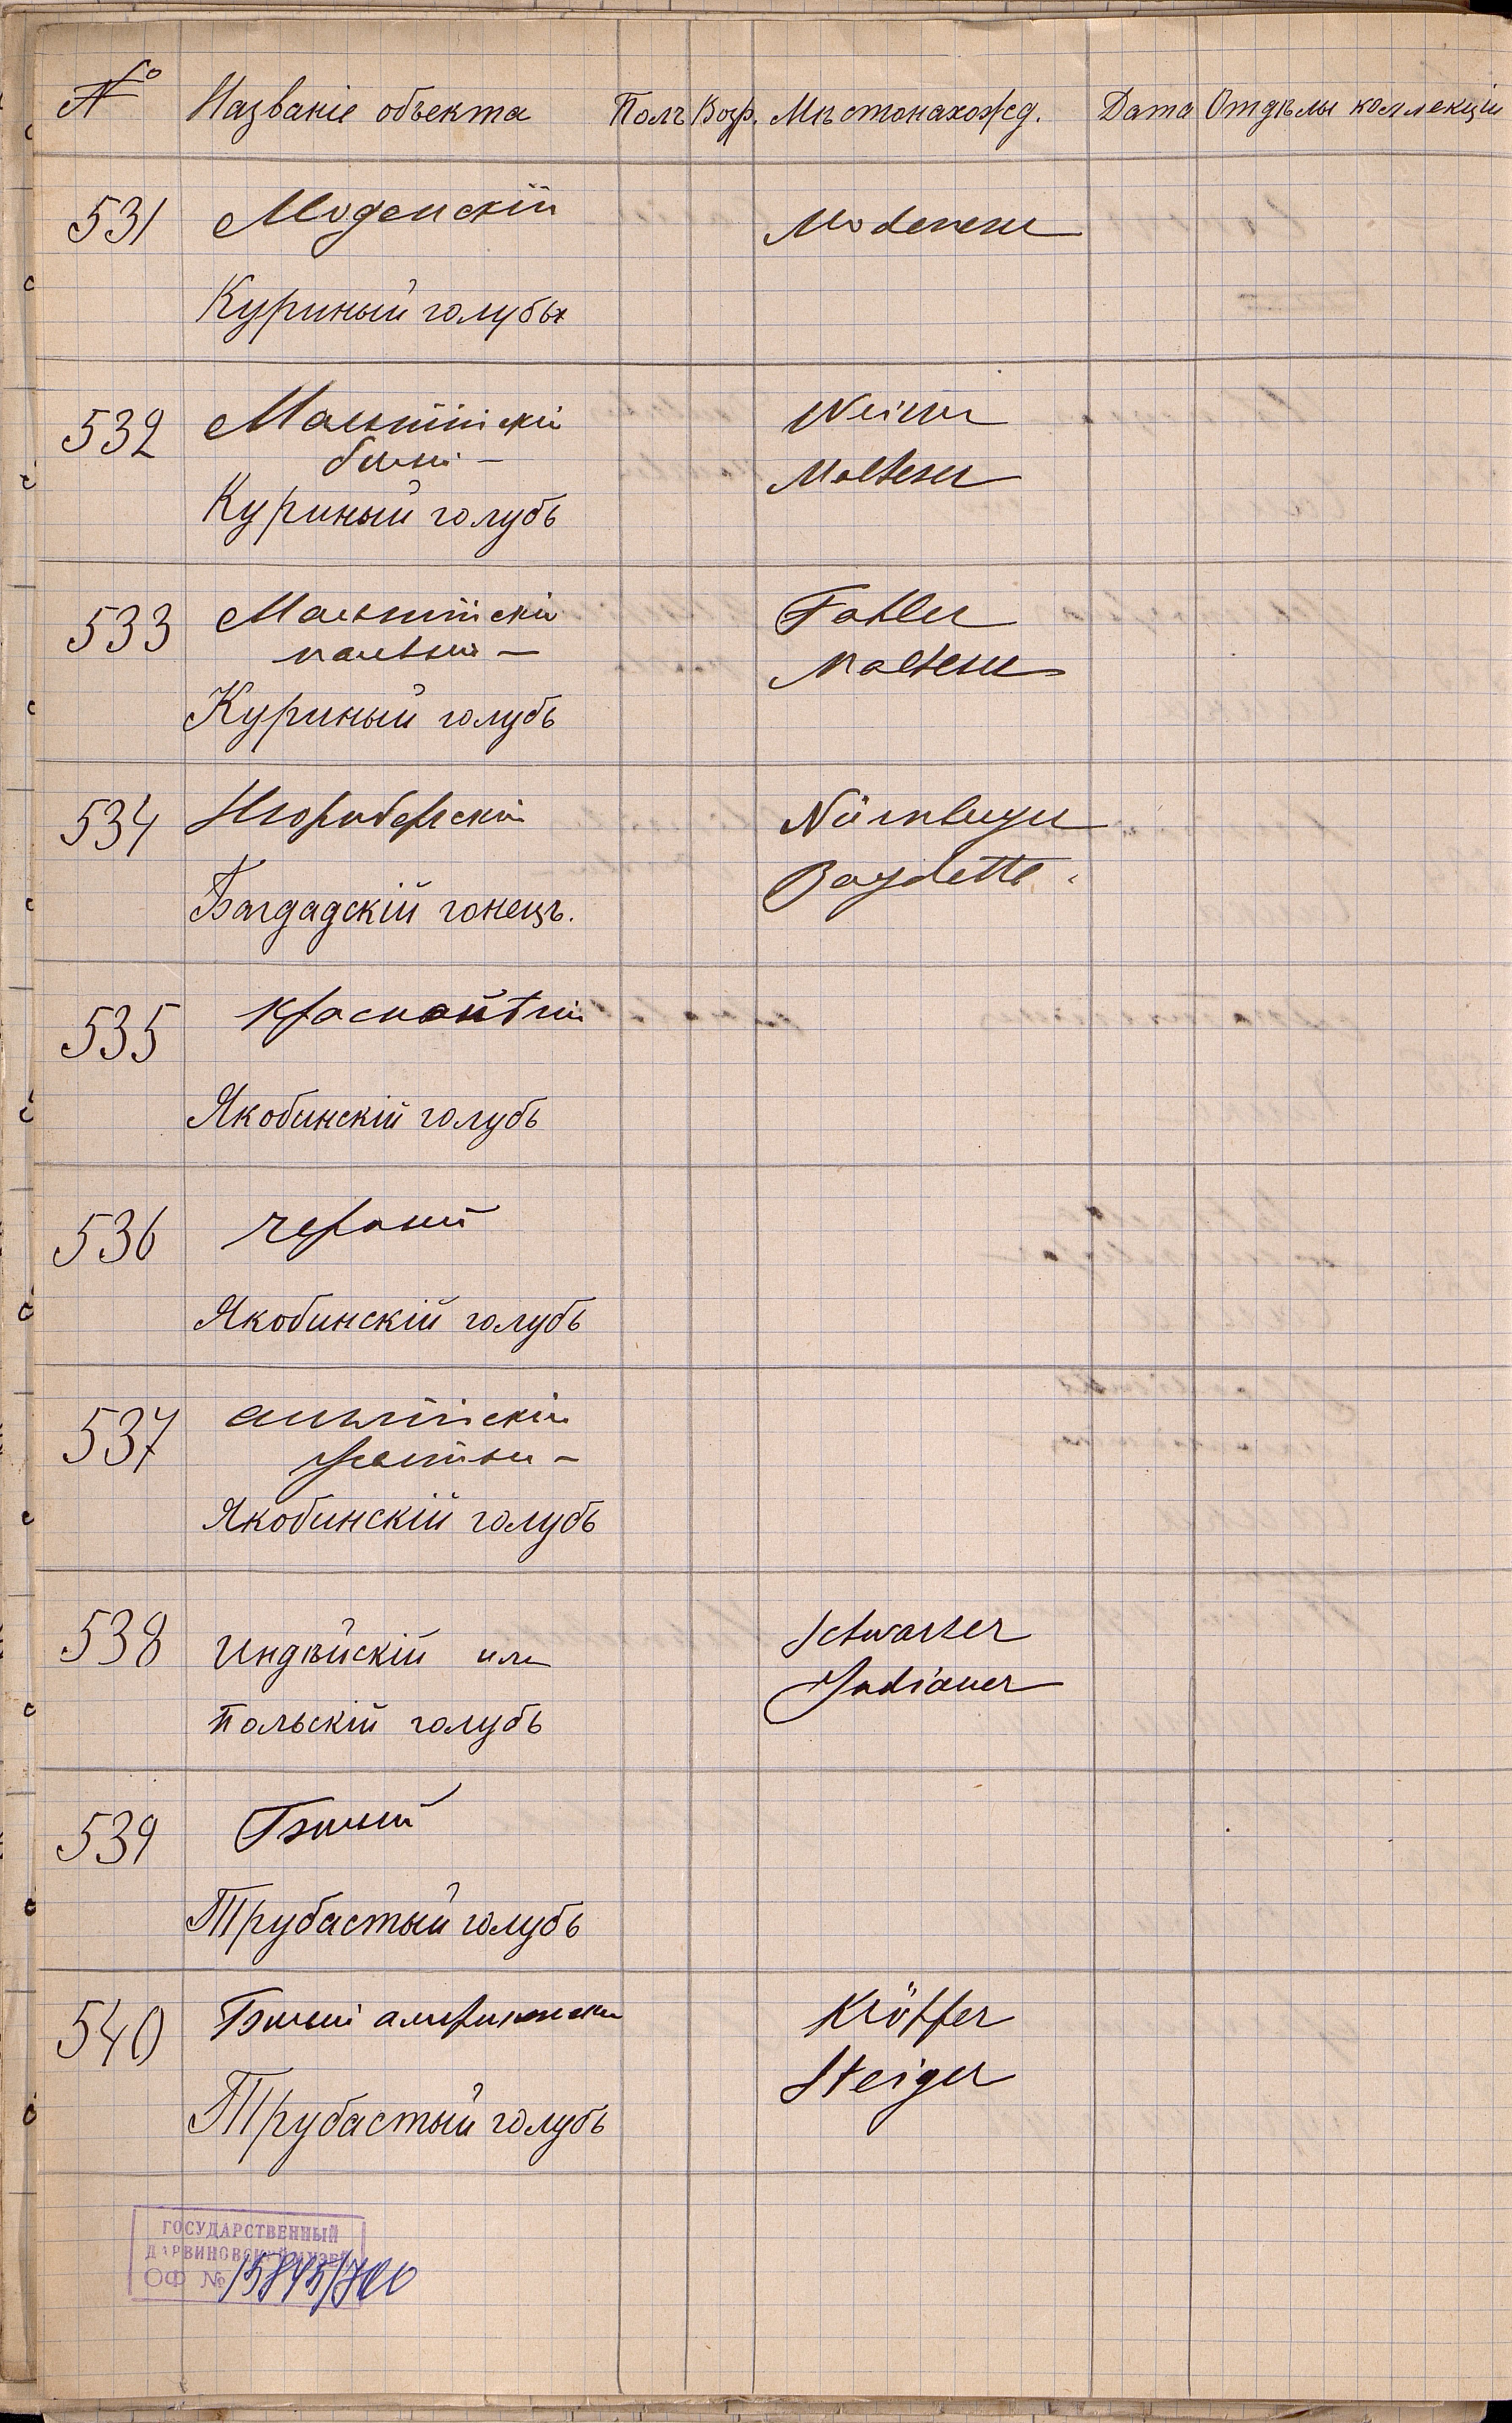 № Названіе объекта Полъ Возр. Мѣстонахожд. Дата Отдѣлы коллекціи
531 Моденскій Modeneser
Куриный голубь
532 Мальтійскій Weisser
бѣлый - Malteser
Куриный голубь
533 Мальтійскій Fahler
палевый - Malteser
Куриный голубь
534 Нюрнбергскій Nürnberger
Багдадскій гонецъ. Bagdette.
535
Якобинскій голубь
536 черный
Якобинскій голубь
537
желтый -
Якобинскій голубь
538 Индѣйскій или Schwarzer
Польскій голубь Indianer
539 Бѣлый
Трубастый голубь
540 Бѣлый американскій Kröpfer
Трубастый голубь Steiger
ГОСУДАРСТВЕННЫЙ
ДАРВИНОВСКИЙ МУЗЕЙ
ОФ №